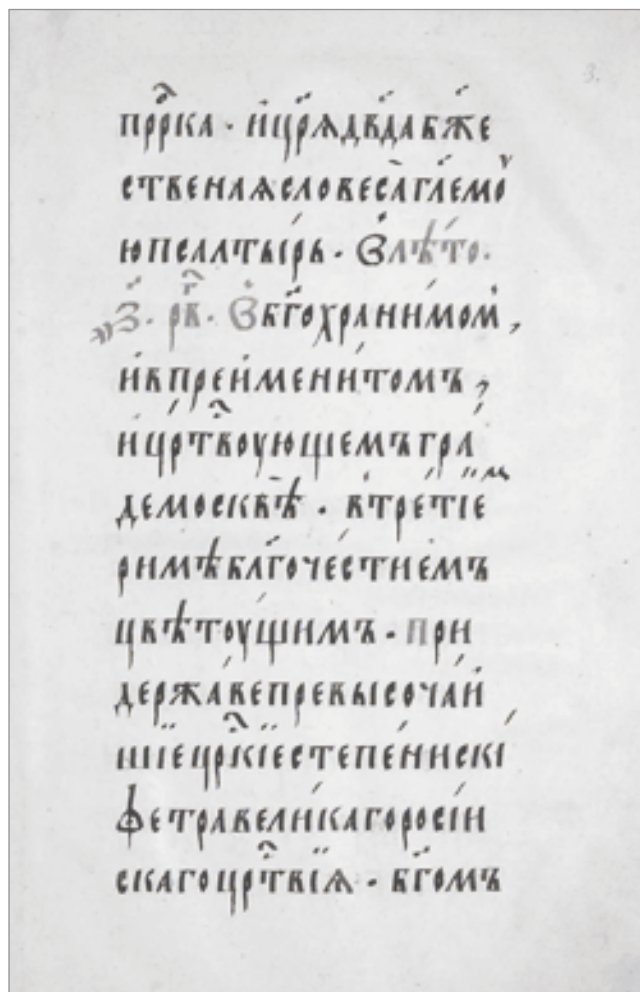 прⷪ҇рка · и҆ цр҃ѧ дв҃да бж҃е
ственаѧ словеса̀ гл҃емоу
ю ѱсалтырь · Въ лѣто ·
҂з҃ · рв҃ · Въ бг҃охранимом,
и҆ в преи҆мени́томъ,
и҆ црⷭ҇твоующемъ гра́
де москвѣ̀ · в трéтїемъ
римѣ бл҃гочéстиемъ
цвѣтоущимъ · при
держáве превысочаи҆
шїе црⷭ҇кїе степéни скі́
ѳетра вели́каго росі́и
скаго црⷭ҇твїѧ · бг҃омъ